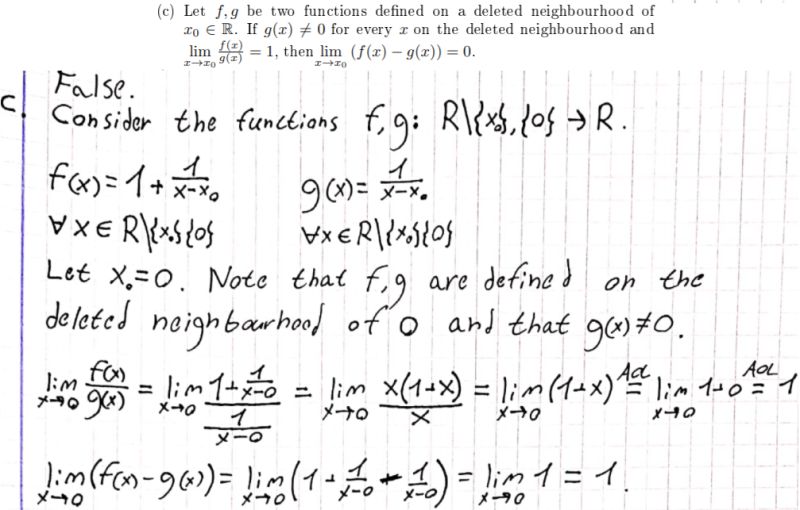 (c) Let f, g be two functions defined on a deleted neighbourhood of
x₀ ∈ ℝ. If g(x) ≠ 0 for every x on the deleted neighbourhood and
lim_{x→x₀} f(x)/g(x) = 1, then lim_{x→x₀} (f(x) − g(x)) = 0.
C. False.
Consider the functions f, g: R\{x₀},{0} → R.
f(x) = 1 + 1/(x-x₀) g(x) = 1/(x-x₀)
∀x∈R\{x₀}{0} ∀x∈R\{x₀}{0}
Let x₀=0. Note that f,g are defined on the
deleted neighbourhood of 0 and that g(x)≠0.
lim_{x→0} f(x)/g(x) = lim_{x→0} (1+1/(x-0))/(1/(x-0)) = lim_{x→0} x(1+x)/x = lim_{x→0} (1+x) =^{AoL} lim_{x→0} 1+0 =^{AoL} 1
lim_{x→0} (f(x)-g(x)) = lim_{x→0} (1+1/(x-0) - 1/(x-0)) = lim_{x→0} 1 = 1.